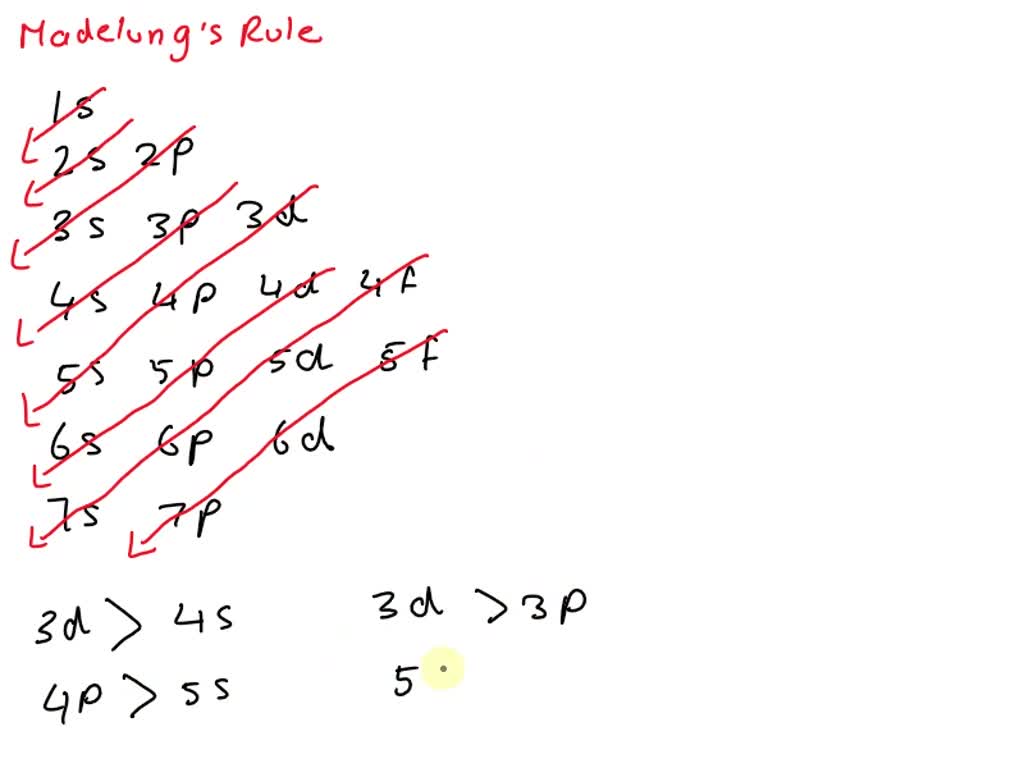 Madelung's Rule
1s
2s 2p
3s 3p 3d
4s 4p 4d 4f
5s 5p 5d 5f
6s 6p 6d
7s 7p
3d > 4s 3d > 3p
4p > 5s 5